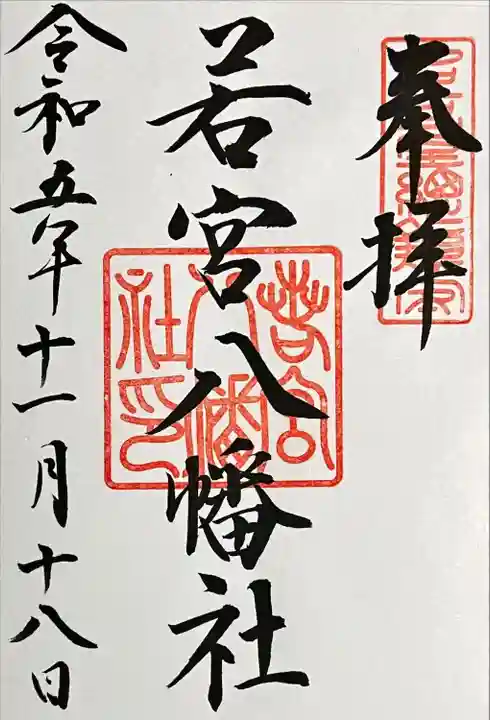 奉拝
若宮八幡社
若宮八幡社印
令和五年十一月十八日